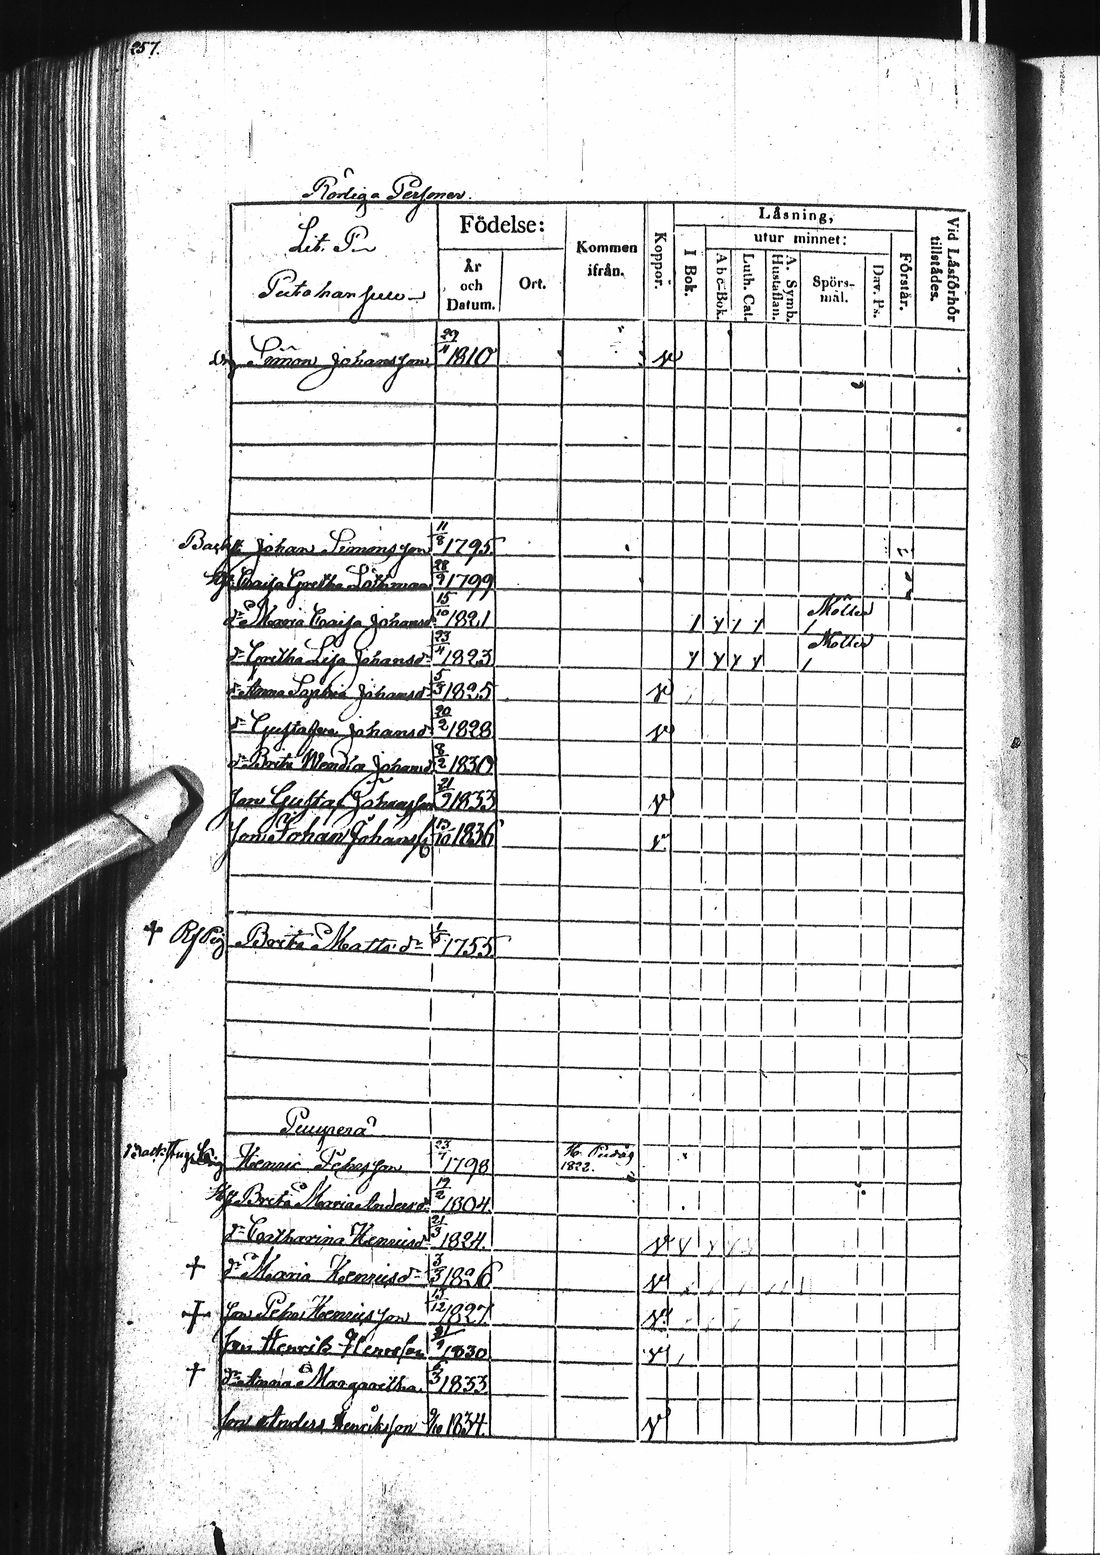 257.
Rörlige Personer.
Lit. P.
Födelse:
År och Datum.
Ort.
Kommen ifrån.
Koppor.
Läsning,
I Bok.
utur minnet:
Abc-Bok.
Luth. Cat.
A. Symb. Hustaflan.
Spörs-mål.
Dav. Ps.
Förstår.
Vid Läsförhör tillstädes.
Drg Simon Johansson 29/11 1810 v
Johan Simonsson 11/8 1795
Caisa Gretha 28/9 1799
dr Maria Caisa Johansdr 15/10 1821
dr Gretha Lisa Johansdr 23/4 1823
dr Anna Sophia Johansdr 5/3 1825 v
dr Gustafva Johansdr 20/2 1828 v
dr Brita Wendla Johansdr 8/2 1830
Son Gustaf Johansson 21/9 1833 v
Son Johan Johanss 13/10 1836 v
† Brita Matts dr 1755
Henric Petersson 23/7 1798 1822.
Brita Maria Andersdr 19/2 1804.
dr Catharina Henricsdr 21/3 1824. v
† dr Maria Henricsdr 3/3 1826 v
† Son Petter Henricsson 13/12 1827 v
Son Henrik Henrsson 1830 v
† dr Anna Margaretha 1833
Son Anders Henriksson 9/10 1834. v